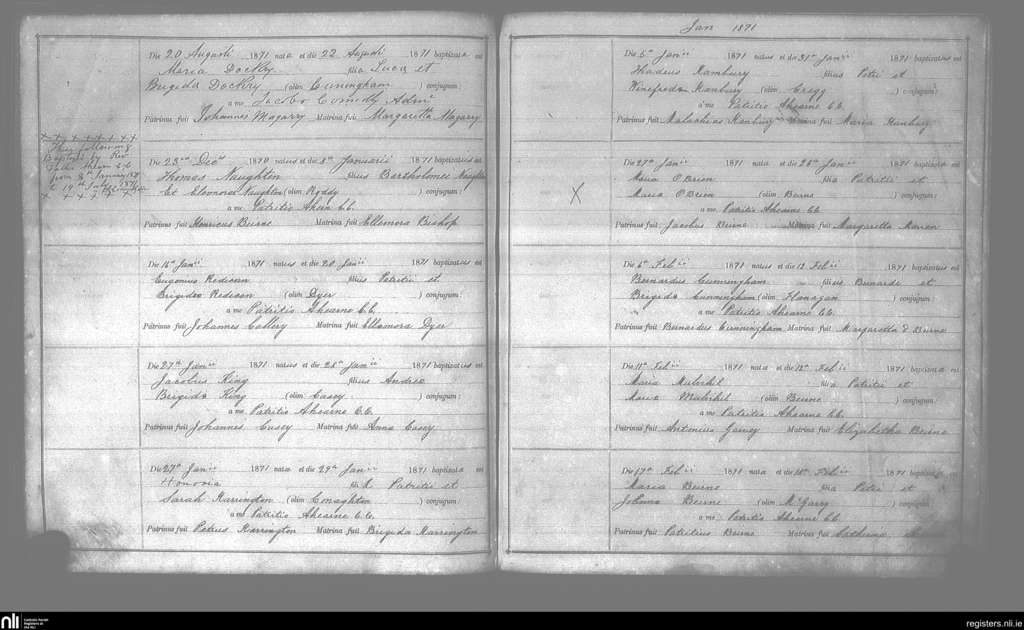 Die 20 Augusti 1871 nata et die 22 Augusti 1871 baptizata est
Maria Dockry filia Luca et
Brigida Dockry (olim Cunningham) conjugum:
a me Jacobo Comolly Admr
Patrinus fuit Johannes Magarry Matrina fuit Margaretta Magarry
x + + + + + + +
The following
Baptisms by Rev
from 8th January
to 19th July 1871
x + + + + +
Die 23 Decr 1870 natus et die 8th Januarii 1871 baptizatus est
Thomas Naughton filius Bartholomei Naughton
Et Elomora Naughton (olim Roddy) conjugum:
a me Patritio Ahern C.C.
Patrinus fuit Henricus Burne Matrina fuit Ellemora Bishop
Die 16th Janii 1871 natus et die 20 Janii 1871 baptizatus est
Eugenius Redican filius Patritii et
Brigida Redican (olim Dyer) conjugum:
a me Patritio Ahearne C.C.
Patrinus fuit Johannes Callery Matrina fuit Ellemora Dyer
Die 27th Janii 1871 natus et die 28th Janii 1871 baptizatus est
Jacobus King filius Andreo
Brigida King (olim Casey) conjugum:
a me Patritio Ahearne C.C.
Patrinus fuit Johannes Casey Matrina fuit Anna Casey
Die 27th Janii 1871 nata et die 29th Janii 1871 baptizata est
Honoria filia Patritii et
Sarah Harrington (olim Conaghton) conjugum:
a me Patritio Ahearne C.C.
Patrinus fuit Petrus Harrington Matrina fuit Brigida Harrington
Jan 1871
Die 5th Janii 1871 natus et die 31st Janii 1871 baptizatus est
Thadeus Hanbury filius Petri et
Winefreda Hanbury (olim Cregg) conjugum:
a me Patritio Ahearne C.C.
Patrinus fuit Malachias Hanbury Matrina fuit Maria Hanbury
X
Die 27th Janii 1871 nata et die 28th Janii 1871 baptizata est
Maria O'Brien filia Patritii et
Maria O'Brien (olim Burne) conjugum:
a me Patritio Ahearne C.C.
Patrinus fuit Jacobus Burne Matrina fuit Margaretta
Die 6th Febii 1871 natus et die 12 Febii 1871 baptizatus est
Bernardus Cunningham filius Bernardi et
Brigida Cunningham (olim Flanagan) conjugum:
a me Patritio Ahearne C.C.
Patrinus fuit Bernardus Cunningham Matrina fuit Margaretta Burne
Die 11th Febii 1871 nata et die 12th Febii 1871 baptizata est
Maria Mulvihil filia Patritii et
Maria Mulvihil (olim Burne) conjugum:
a me Patritio Ahearne C.C.
Patrinus fuit Antonius Matrina fuit Elizabetha Burne
Die 17th Febii 1871 nata et die 18th Febii 1871 baptizata est
Maria Burne filia Petri et
Johna Burne (olim McGarry) conjugum
a me Patritio Ahearne C.C.
Patrinus fuit Patritius Burne Matrina fuit Catherine
nli Catholic Parish Registers at the NLI
registers.nli.ie